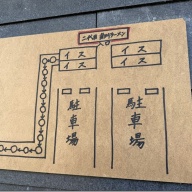 二代目
ラーメン
入口
イス イス
イス イス
駐車場 駐車場